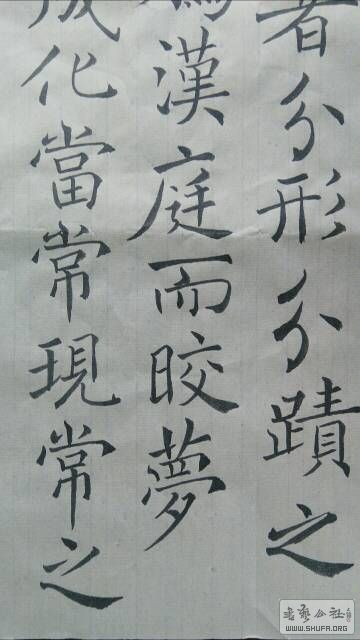 者分形分蹟之
漢庭而晈夢
成化當常現常之
书艺公社
WWW.SHUFA.ORG